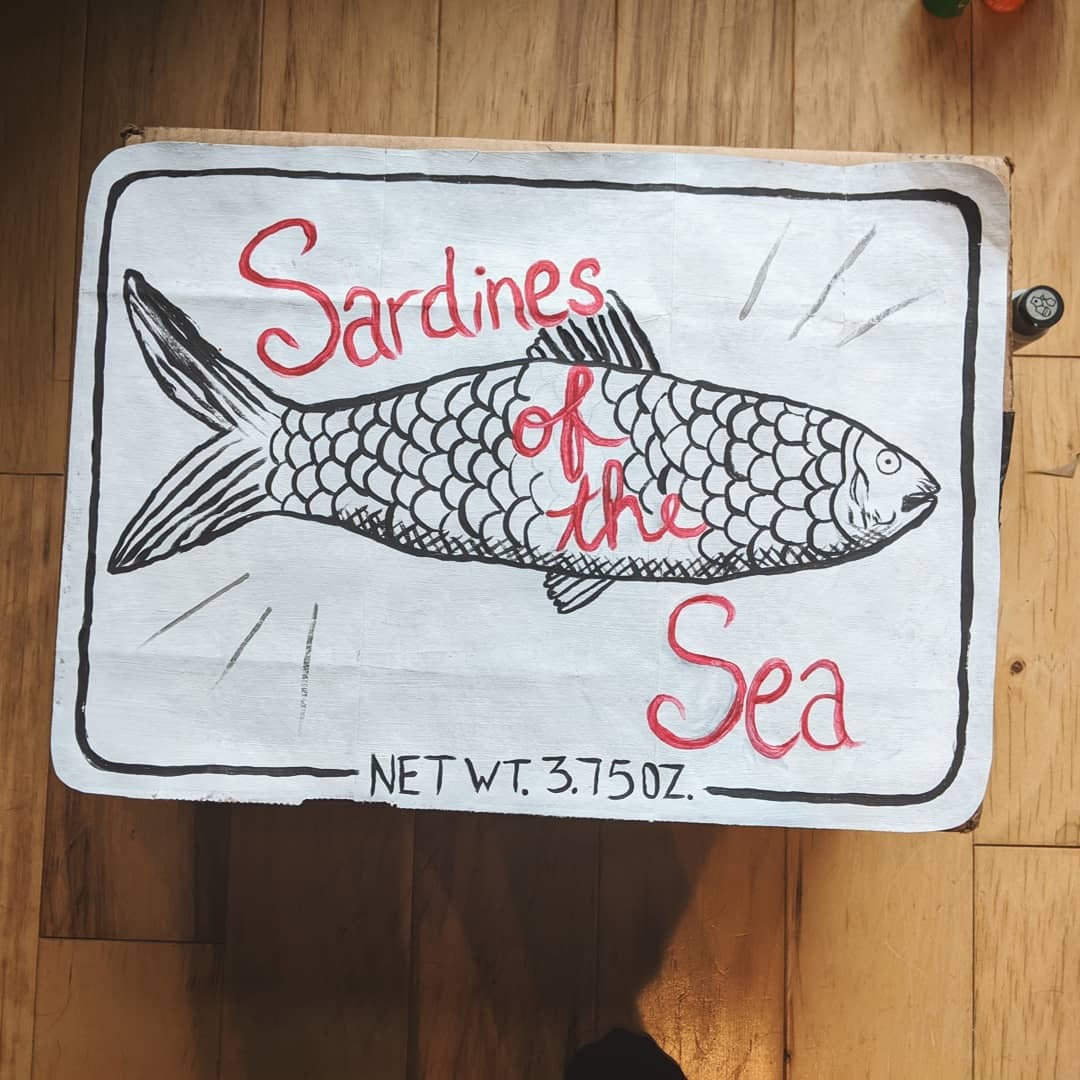 Sardines
of
the
Sea
NET WT. 3.75 OZ.